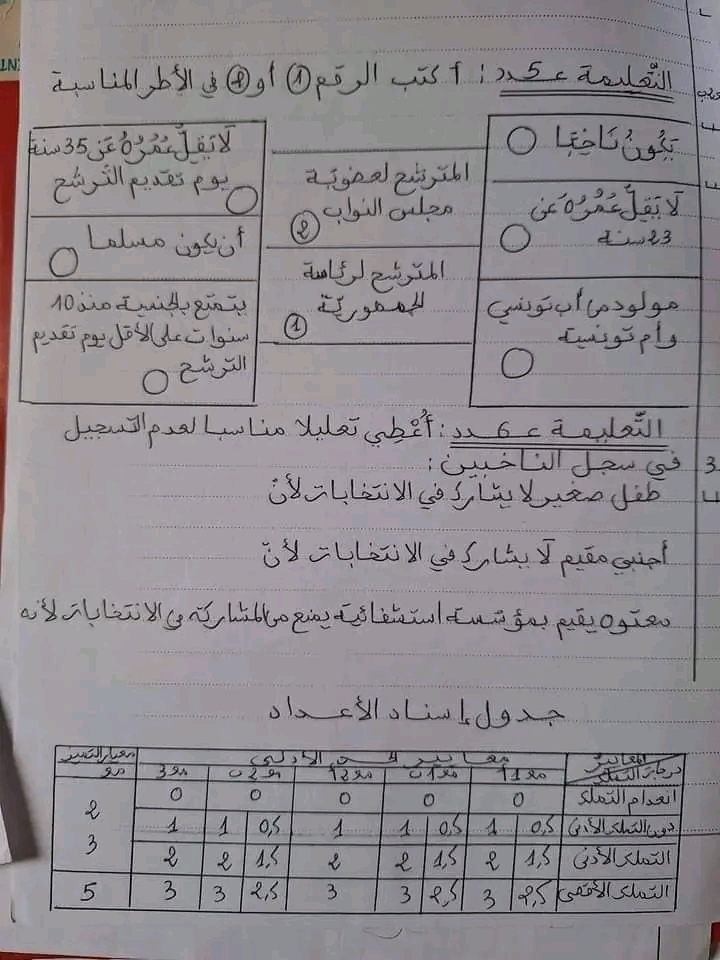 التّعليمة عـ5ـدد: أكتب الرقم 1 أو 2 في الأطر المناسبة
يَكُونُ نَاخِبًا
لَا يَقِلُّ عُمُرُهُ عَن
23 سنة
مولود من أب تونسي
وأم تونسية
المترشح لعضوية
مجلس النواب
2
المترشح لرئاسة
الجمهوريّة
1
لَا يَقِلُّ عُمُرُهُ عَن 35 سنة
يوم تقديم التّرشح
أن يكون مسلما
يتمتع بالجنسية منذ 10
سنوات على الأقل يوم تقديم
الترشح
التّعليمة عـ6ـدد: أُعْطِي تعليلا مناسبا لعدم التسجيل
في سجل الناخبين:
طفل صغير لا يشارك في الانتخابات لأنّ
أجنبي مقيم لا يشارك في الانتخابات لأنّ
معتوه يقيم بمؤسسة استشفائية يمنع من المشاركة في الانتخابات لأنه
جدول إسناد الأعداد
المعايير
درجات التملك
معايير الحد الأدنى
معيار التميز
مع1أ مع1ب مع2أ مع2ب مع3 مع5
انعدام التملك 0 0 0 0 0
دون التملك الأدنى 0,5 1 0,5 1 1 0,5 1 1
التملك الأدنى 1,5 2 1,5 2 2 1,5 2 2
2
3
التملك الأقصى 2,5 3 2,5 3 3 2,5 3 3 5